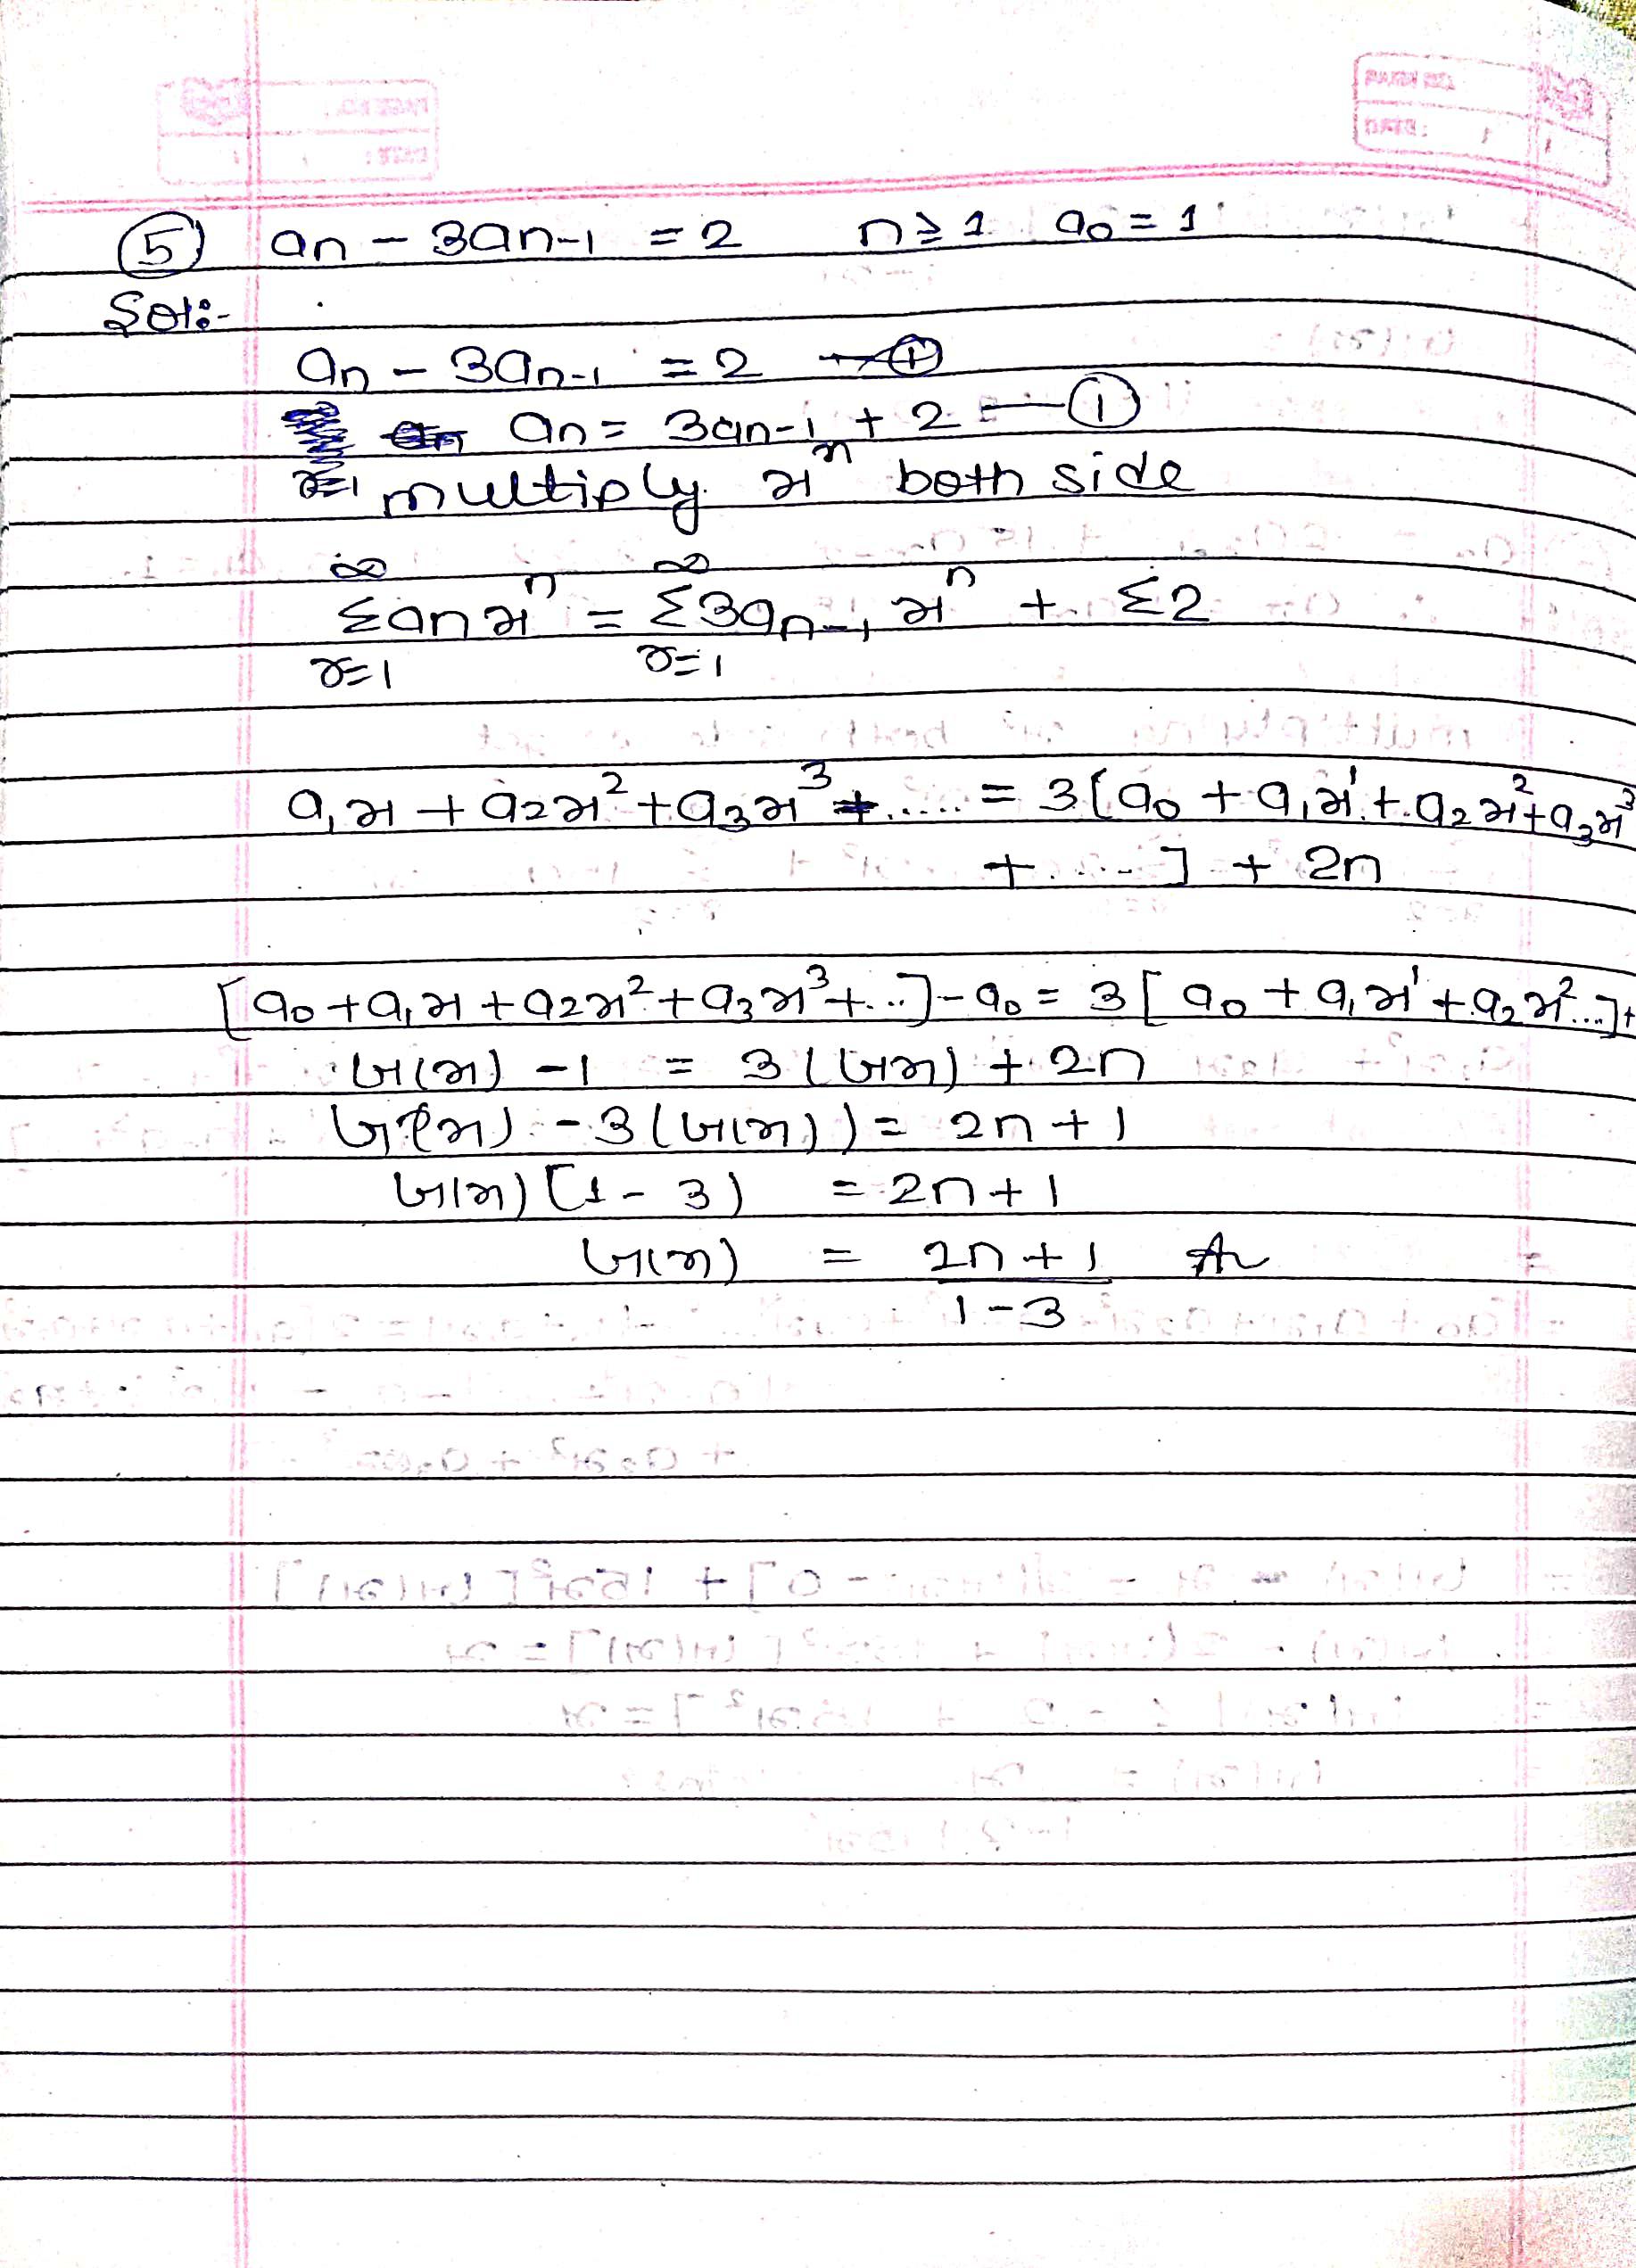 (5) an - 3an-1 = 2 n ≥ 1 a0 = 1
Sol:-
an - 3an-1 = 2
an = 3an-1 + 2 — (1)
r=1 multiply x^n both side
∞ ∞
Σ an x^n = Σ 3an-1 x^n + Σ2
r=1 r=1
a1x + a2x^2 + a3x^3 + ..... = 3[a0 + a1x^1 + a2x^2 + a3x^3
+ ..... ] + 2n
[a0 + a1x + a2x^2 + a3x^3 + ...] - a0 = 3[a0 + a1x^1 + a2x^2 ...] +
G(x) - 1 = 3(G(x) + 2n
G(x) - 3(G(x)) = 2n + 1
G(x) [1 - 3) = 2n + 1
G(x) = 2n + 1
1 - 3